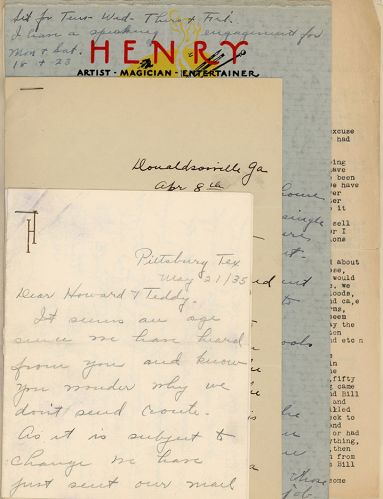 Sit for Tues- Wed- Thurs & Fri.
I have a speaking engagement for
Mon & Sat.
18 & 23
HENRY
ARTIST - MAGICIAN - ENTERTAINER
Donaldsonville Ga
Apr 8th
H
Pittsburg Tex
May 21/35
Dear Howard & Teddy.
It seems an age
since we have heard
from you and know
you wonder why we
don't send route.
As it is subject to
change we have
just sent our mail
home
single
ools
those
xcuse
had
ing
ave
been
e have
ver
ter
it
sell
r I
ons
d about
ose,
would
, we
oods,
nd ca,e
rms,
been
ay the
ton
nd etc n
in
he
,fifty
g came
d Bill
and
kled
ck to
ond
or had
ything,
,then
n from
s Bill
ome